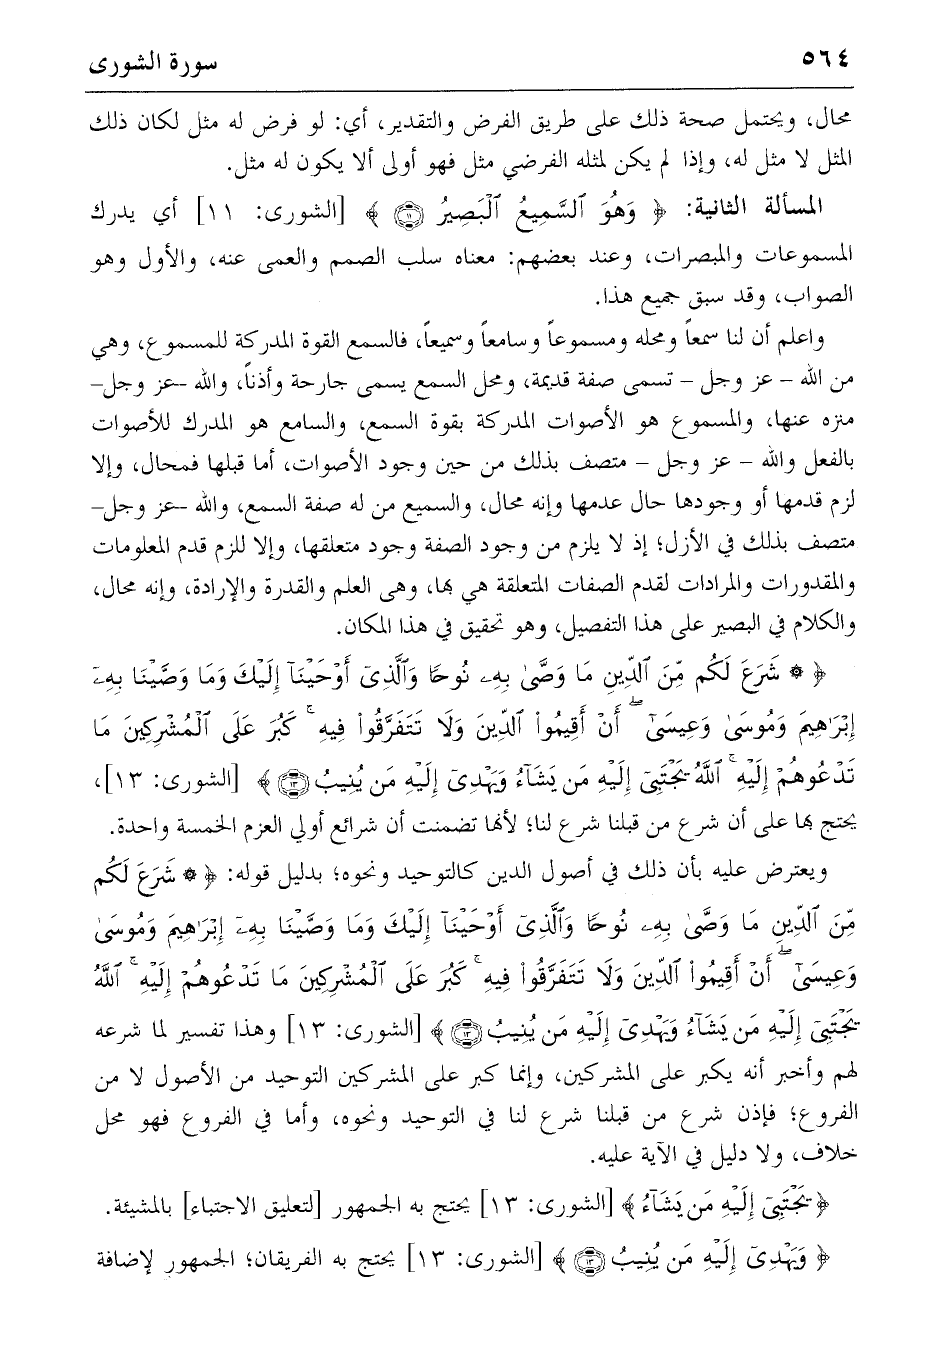 ٥٦٤
سورة الشورى
محال، ويحتمل صحة ذلك على طريق الفرض والتقدير، أي: لو فرض له مثل لكان ذلك
المثل لا مثل له، وإذا لم يكن لمثله الفرضي مثل فهو أولى ألا يكون له مثل.
المسألة الثانية: ﴿ وَهُوَ ٱلسَّمِيعُ ٱلْبَصِيرُ ۝١١ ﴾ [الشورى: ١١] أي يدرك
المسموعات والمبصرات، وعند بعضهم: معناه سلب الصمم والعمى عنه، والأول وهو
الصواب، وقد سبق جميع هذا.
واعلم أن لنا سمعاً ومحله ومسموعاً وسامعاً وسميعاً، فالسمع القوة المدركة للمسموع، وهي
من الله – عز وجل – تسمى صفة قديمة، ومحل السمع يسمى جارحة وأذناً، والله –عز وجل–
منزه عنها، والمسموع هو الأصوات المدركة بقوة السمع، والسامع هو المدرك للأصوات
بالفعل والله – عز وجل – متصف بذلك من حين وجود الأصوات، أما قبلها فمحال، وإلا
لزم قدمها أو وجودها حال عدمها وإنه محال، والسميع من له صفة السمع، والله –عز وجل–
متصف بذلك في الأزل؛ إذ لا يلزم من وجود الصفة وجود متعلقها، وإلا للزم قدم المعلومات
والمقدورات والمرادات لقدم الصفات المتعلقة هي بها، وهى العلم والقدرة والإرادة، وإنه محال،
والكلام في البصير على هذا التفصيل، وهو تحقيق في هذا المكان.
﴿ ۞ شَرَعَ لَكُم مِّنَ ٱلدِّينِ مَا وَصَّىٰ بِهِۦ نُوحًا وَٱلَّذِىٓ أَوْحَيْنَآ إِلَيْكَ وَمَا وَصَّيْنَا بِهِۦٓ
إِبْرَٰهِيمَ وَمُوسَىٰ وَعِيسَىٰٓ ۖ أَنْ أَقِيمُوا۟ ٱلدِّينَ وَلَا تَتَفَرَّقُوا۟ فِيهِ ۚ كَبُرَ عَلَى ٱلْمُشْرِكِينَ مَا
تَدْعُوهُمْ إِلَيْهِ ۚ ٱللَّهُ يَجْتَبِىٓ إِلَيْهِ مَن يَشَآءُ وَيَهْدِىٓ إِلَيْهِ مَن يُنِيبُ ۝١٣ ﴾ [الشورى: ١٣]،
يحتج بها على أن شرع من قبلنا شرع لنا؛ لأنها تضمنت أن شرائع أولي العزم الخمسة واحدة.
ويعترض عليه بأن ذلك في أصول الدين كالتوحيد ونحوه؛ بدليل قوله: ﴿ ۞ شَرَعَ لَكُم
مِّنَ ٱلدِّينِ مَا وَصَّىٰ بِهِۦ نُوحًا وَٱلَّذِىٓ أَوْحَيْنَآ إِلَيْكَ وَمَا وَصَّيْنَا بِهِۦٓ إِبْرَٰهِيمَ وَمُوسَىٰ
وَعِيسَىٰٓ ۖ أَنْ أَقِيمُوا۟ ٱلدِّينَ وَلَا تَتَفَرَّقُوا۟ فِيهِ ۚ كَبُرَ عَلَى ٱلْمُشْرِكِينَ مَا تَدْعُوهُمْ إِلَيْهِ ۚ ٱللَّهُ
يَجْتَبِىٓ إِلَيْهِ مَن يَشَآءُ وَيَهْدِىٓ إِلَيْهِ مَن يُنِيبُ ۝١٣ ﴾ [الشورى: ١٣] وهذا تفسير لما شرعه
لهم وأخبر أنه يكبر على المشركين، وإنما كبر على المشركين التوحيد من الأصول لا من
الفروع؛ فإذن شرع من قبلنا شرع لنا في التوحيد ونحوه، وأما في الفروع فهو محل
خلاف، ولا دليل في الآية عليه.
﴿ يَجْتَبِىٓ إِلَيْهِ مَن يَشَآءُ ﴾ [الشورى: ١٣] يحتج به الجمهور [لتعليق الاجتباء] بالمشيئة.
﴿ وَيَهْدِىٓ إِلَيْهِ مَن يُنِيبُ ۝١٣ ﴾ [الشورى: ١٣] يحتج به الفريقان؛ الجمهور لإضافة